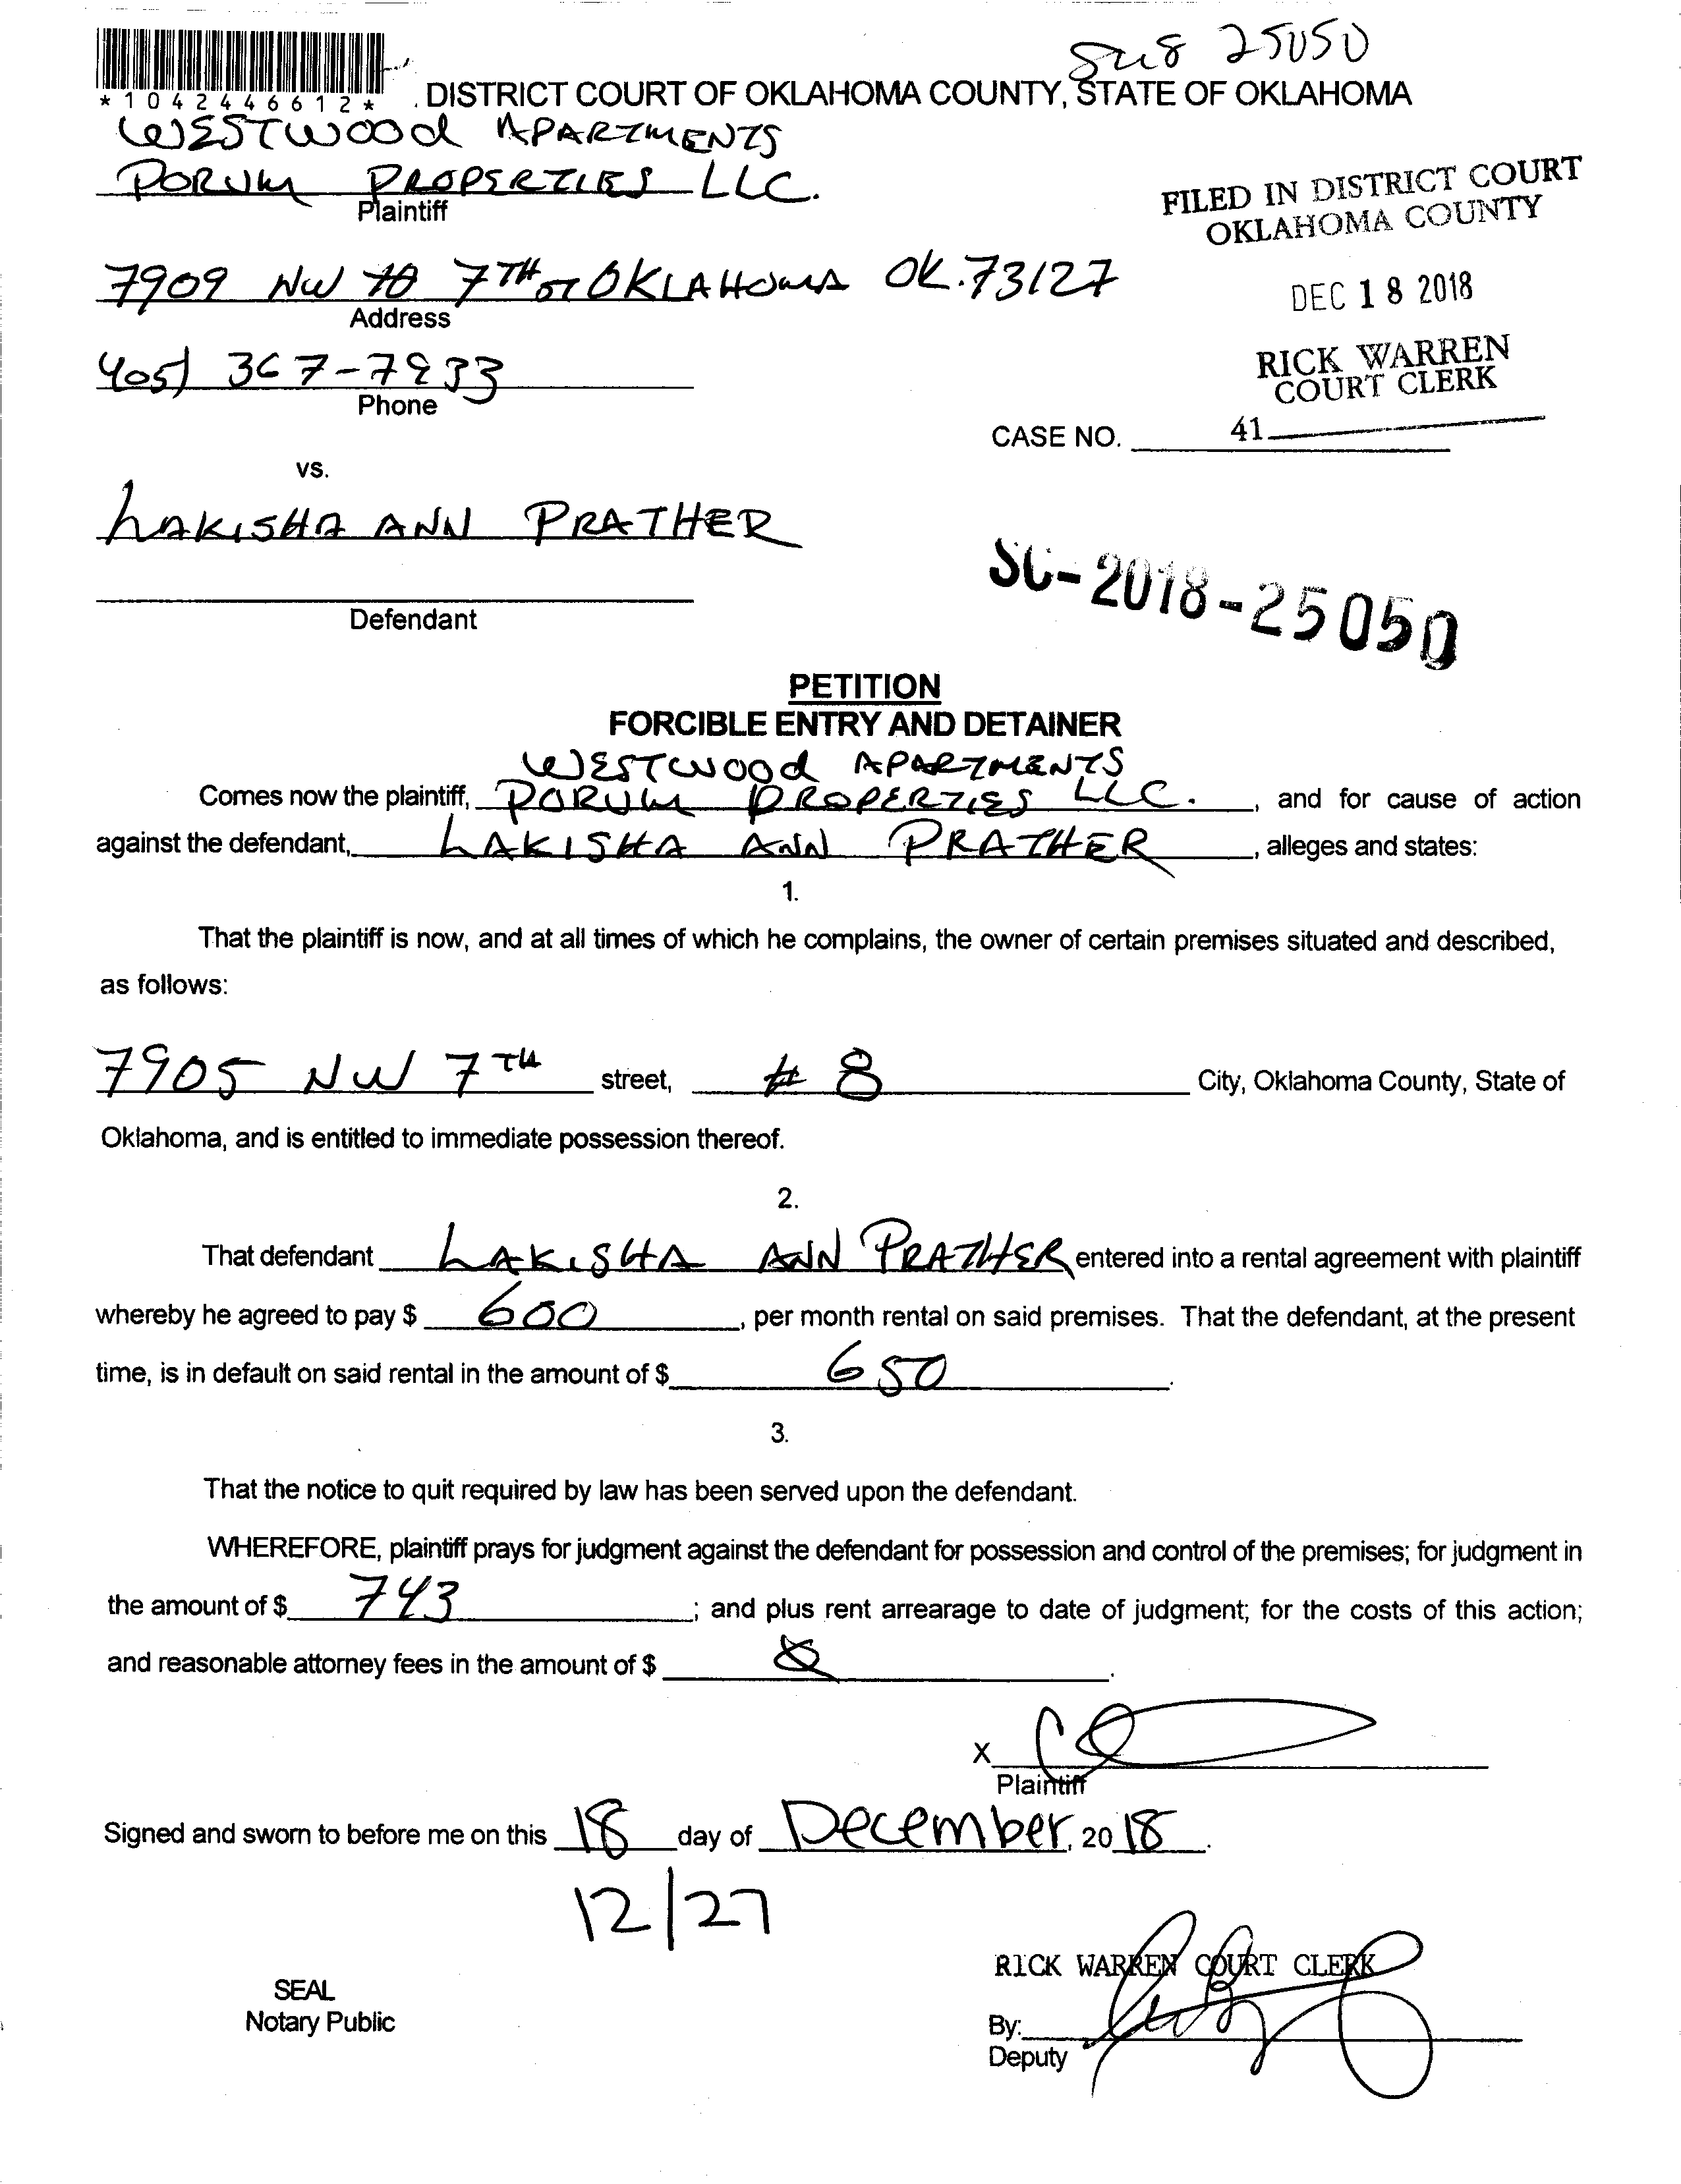 25050
*1042446612*
DISTRICT COURT OF OKLAHOMA COUNTY, STATE OF OKLAHOMA
WESTWOOD APARTMENTS
PORUM PROPERTIES LLC.
Plaintiff
FILED IN DISTRICT COURT
OKLAHOMA COUNTY
7909 NW 7TH ST OKLAHOMA OK. 73127
Address
DEC 18 2018
405) 367-7933
Phone
RICK WARREN
COURT CLERK
CASE NO. 41
vs.
LAKISHA ANN PRATHER
Defendant
SC-2018-25050
PETITION
FORCIBLE ENTRY AND DETAINER
WESTWOOD APARTMENTS
Comes now the plaintiff, PORUM PROPERTIES LLC. , and for cause of action
against the defendant, LAKISHA ANN PRATHER , alleges and states:
1.
That the plaintiff is now, and at all times of which he complains, the owner of certain premises situated and described,
as follows:
7905 NW 7TH street, # 8 City, Oklahoma County, State of
Oklahoma, and is entitled to immediate possession thereof.
2.
That defendant LAKISHA ANN PRATHER entered into a rental agreement with plaintiff
whereby he agreed to pay $ 600 , per month rental on said premises. That the defendant, at the present
time, is in default on said rental in the amount of $ 650 .
3.
That the notice to quit required by law has been served upon the defendant.
WHEREFORE, plaintiff prays for judgment against the defendant for possession and control of the premises; for judgment in
the amount of $ 743 ; and plus rent arrearage to date of judgment; for the costs of this action;
and reasonable attorney fees in the amount of $ .
X
Plaintiff
Signed and sworn to before me on this 18 day of December, 2018.
12/27
RICK WARREN COURT CLERK
SEAL
Notary Public
By:
Deputy